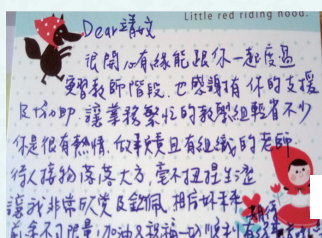 Little red riding hood.
Dear 靖雯
很開心有緣能跟你一起度過
實習教師階段,也感謝有你的支援
及協助,讓業務繁忙的教學組輕省不少
你是很有熱情、做事負責且有組織的老師
待人接物落落大方 毫不扭捏
讓我非常欣賞及欽佩 相信好
不可限量!加油